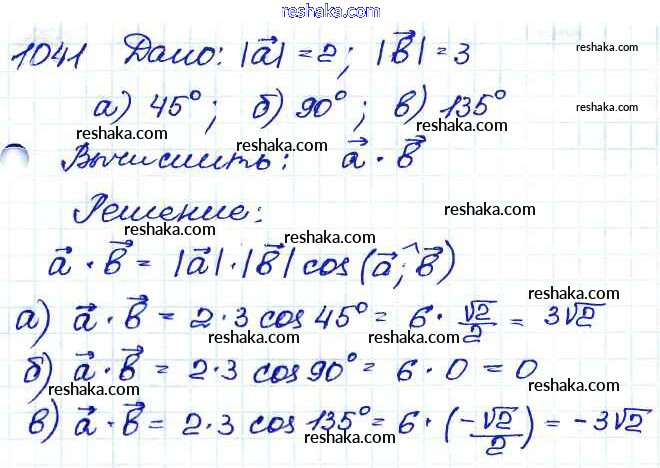 reshaka.com
1041 Дано: |a⃗| = 2; |b⃗| = 3
reshaka.com
а) 45°; б) 90°; в) 135°
reshaka.com
reshaka.com reshaka.com
Вычислить: a⃗ · b⃗
reshaka.com
Решение:
reshaka.com
reshaka.com
a⃗ · b⃗ = |a⃗| · |b⃗| cos(a⃗;^b⃗)
reshaka.com
reshaka.com
а) a⃗ · b⃗ = 2 · 3 cos 45° = 6 · √2/2 = 3√2
reshaka.com
reshaka.com
б) a⃗ · b⃗ = 2 · 3 cos 90° = 6 · 0 = 0
reshaka.com
reshaka.com
в) a⃗ · b⃗ = 2 · 3 cos 135° = 6 · (-√2/2) = -3√2
reshaka.com